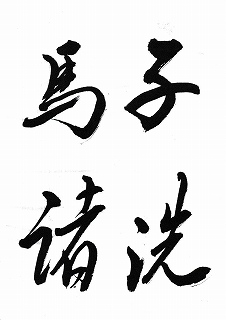 子洗
馬諸